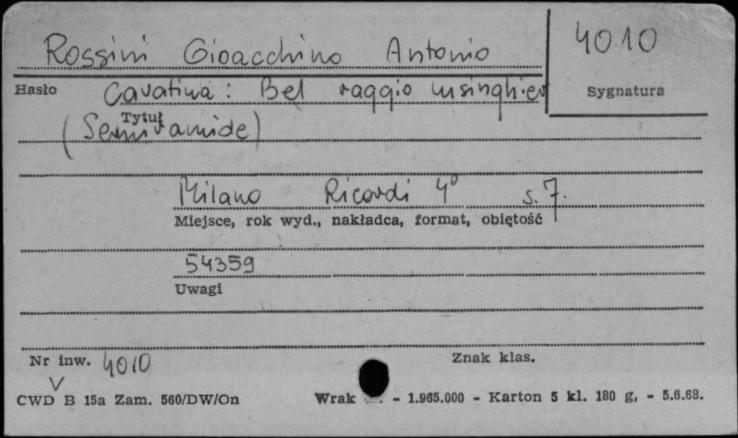 Rossini Gioacchino Antonio
4010
Hasło
Cavatina: Bel raggio lusinghier
Sygnatura
Tytuł
(Semiramide)
Milano Ricordi 4° s. 7.
Miejsce, rok wyd., nakładca, format, obiętość
54359
Uwagi
Nr inw. 4010
Znak klas.
CWD B 15a Zam. 560/DW/On
Wrak - 1.965.000 - Karton 5 kl. 180 g, - 5.6.68.